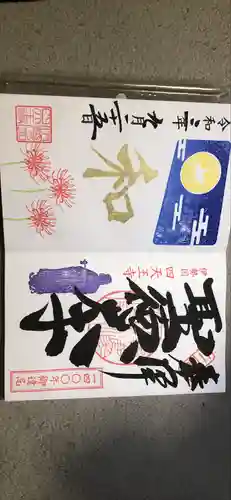 奉拝
伊勢国 四天王寺
聖徳太子
一四〇〇年御遠忌
和
令和三年九月二十五日